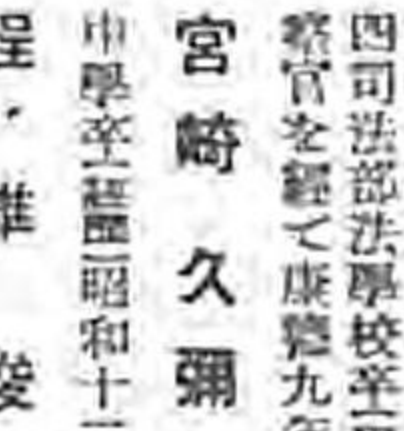 四司法部法學校卒
察官を經て康德九年
宮崎久彌
中學卒【經歷】昭和十一
程・維